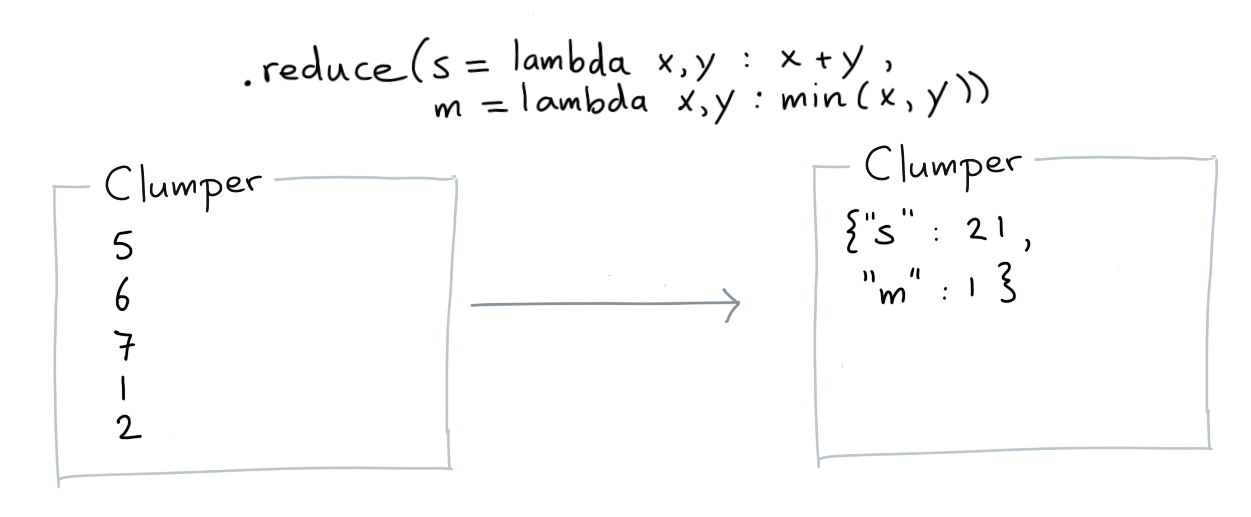 .reduce(s = lambda x,y : x+y ,
m = lambda x,y : min(x, y))
Clumper
5
6
7
1
2
Clumper
{"s" : 21 ,
"m" : 1 }